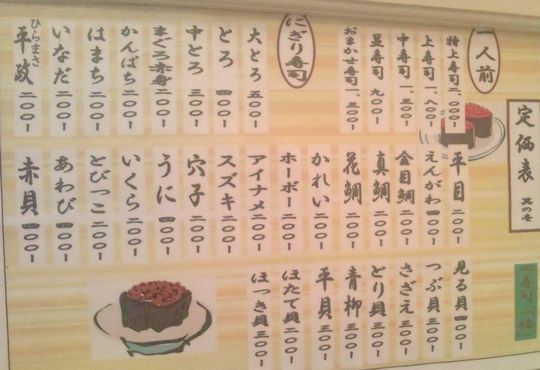 定価表 其の壱
一人前
特上寿司 二、〇〇〇ー
上寿司 一、八〇〇ー
中寿司 一、三〇〇ー
並寿司 九〇〇ー
おまかせ寿司 一、三〇〇ー
にぎり寿司
大とろ 五〇〇ー
とろ 四〇〇ー
中とろ 三〇〇ー
まぐろ赤身 二〇〇ー
かんぱち 二〇〇ー
はまち 二〇〇ー
いなだ 二〇〇ー
平政 二〇〇ー
ひらまさ
平目 二〇〇ー
えんがわ 四〇〇ー
金目鯛 二〇〇ー
真鯛 二〇〇ー
花鯛 二〇〇ー
かれい 二〇〇ー
ホーボー 二〇〇ー
アイナメ 二〇〇ー
スズキ 二〇〇ー
穴子 二〇〇ー
うに 四〇〇ー
いくら 二〇〇ー
とびっこ 二〇〇ー
あわび 四〇〇ー
赤貝 四〇〇ー
見る貝 四〇〇ー
つぶ貝 三〇〇ー
さざえ 三〇〇ー
とり貝 三〇〇ー
青柳 三〇〇ー
平貝 三〇〇ー
ほたて貝 二〇〇ー
ほっき貝 三〇〇ー